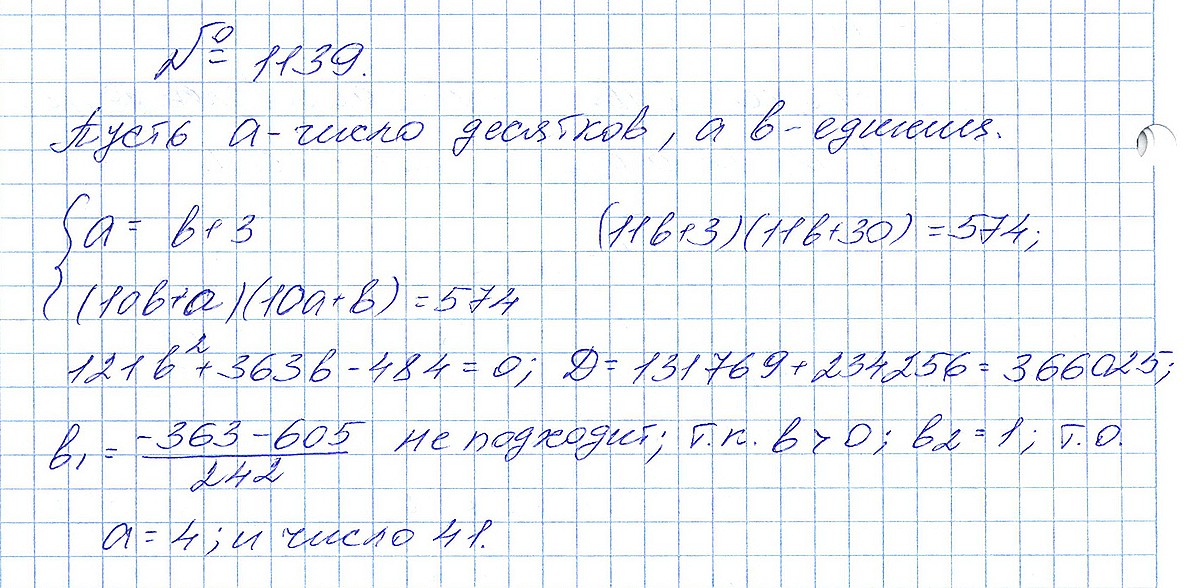 № 1139.
Пусть a - число десятков, а b - единиц.
a = b + 3
(11b+3)(11b+30) = 574;
(10b+a)(10a+b) = 574
121b² + 363b - 484 = 0; D = 131769 + 234256 = 366025;
b₁ = (-363 - 605)/242 не подходит; т.к. b > 0; b₂ = 1; т.о.
a = 4; и число 41.